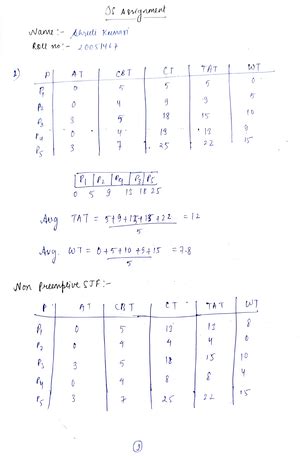 OS Assignment
Name:- Shruti Kumari
Roll no:- 20051467
1)
P AT CBT CT TAT WT
P1 0 5 5 5 0
P2 0 4 9 9 5
P3 3 5 18 15 10
P4 0 4 13 13 9
P5 3 7 25 22 15
P1 P2 P4 P3 P5
0 5 9 13 18 25
Avg TAT = 5+9+15+13+22 = 12
5
Avg. WT = 0+5+10+9+15 = 7.8
5
Non Preemptive SJF:-
P AT CBT CT TAT WT
P1 0 5 13 13 8
P2 0 4 4 4 0
P3 3 5 18 15 10
P4 0 4 8 8 4
P5 3 7 25 22 15